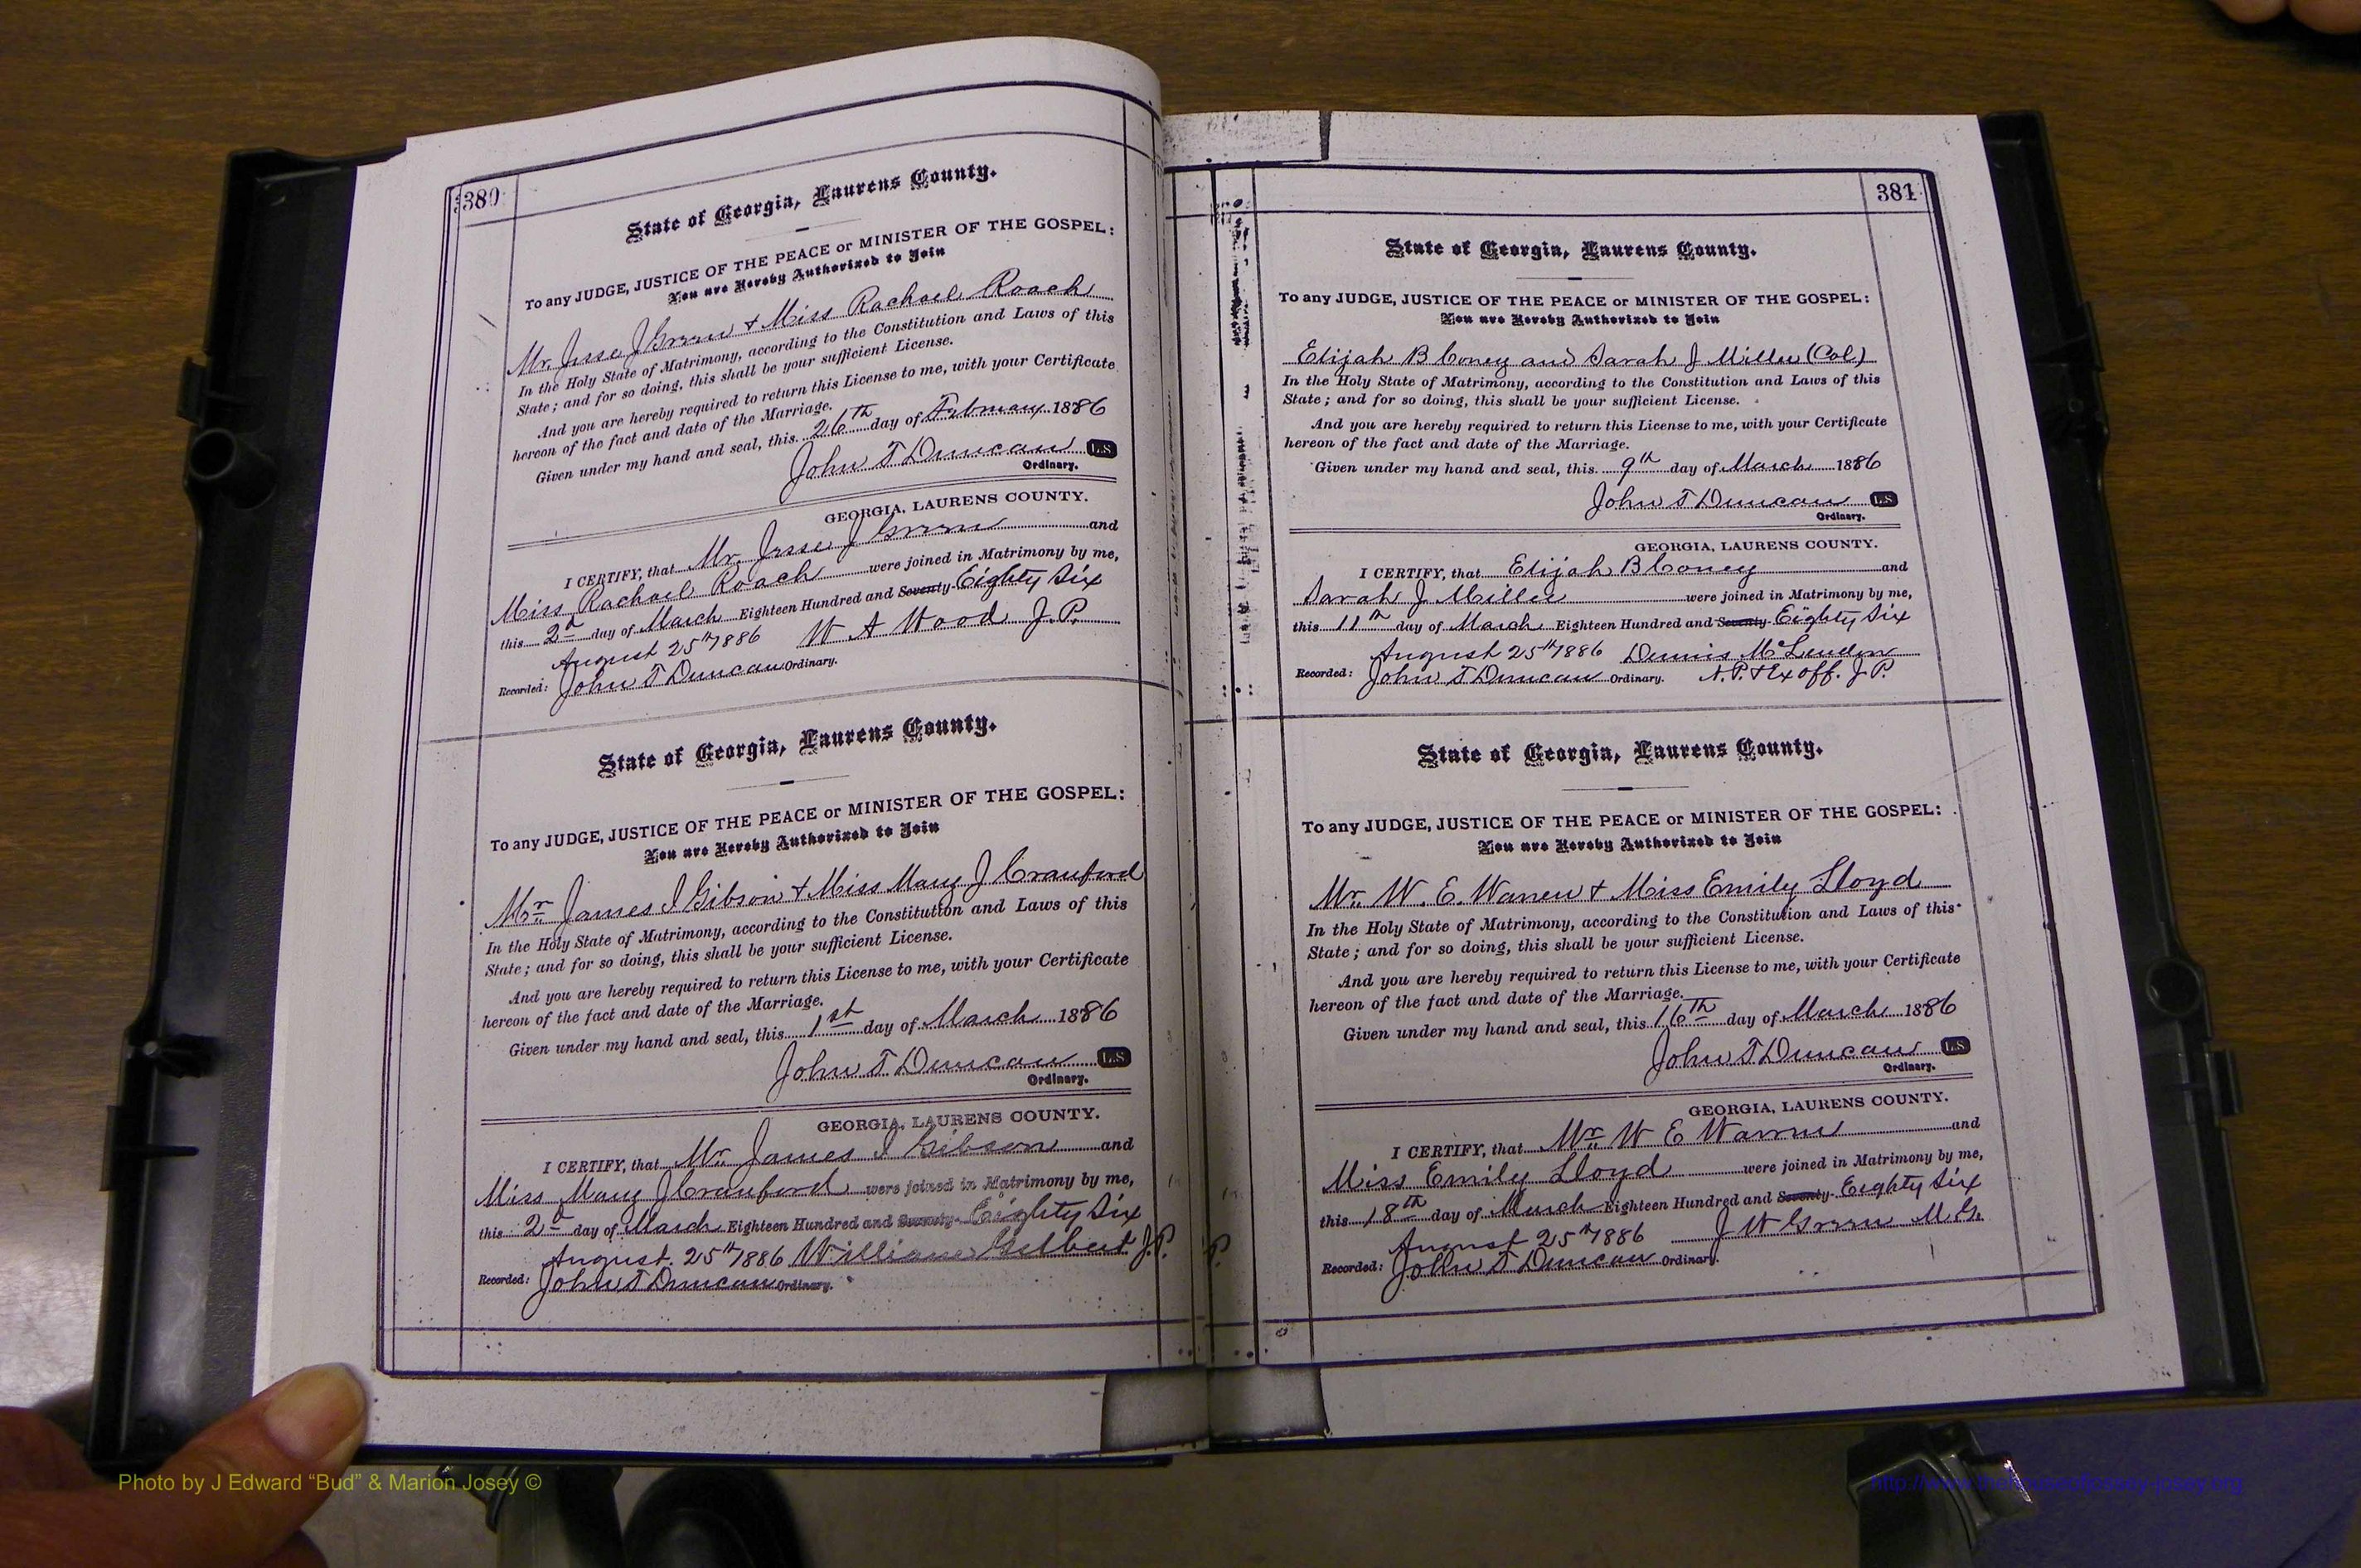 380
State of Georgia, Laurens County.
To any JUDGE, JUSTICE OF THE PEACE or MINISTER OF THE GOSPEL:
You are Hereby Authorized to Join
Mr. Jesse J Green & Miss Rachael Roach
In the Holy State of Matrimony, according to the Constitution and Laws of this
State; and for so doing, this shall be your sufficient License.
And you are hereby required to return this License to me, with your Certificate
hereon of the fact and date of the Marriage.
Given under my hand and seal, this 26th day of February 1886
John T Duncan L.S
Ordinary.
GEORGIA, LAURENS COUNTY.
I CERTIFY, that Mr. Jesse J Green and
Miss Rachael Roach were joined in Matrimony by me,
this 2d day of March Eighteen Hundred and Seventy- Eighty Six
August 25th 1886 W A Wood J.P.
Recorded: John T Duncan Ordinary.
State of Georgia, Laurens County.
To any JUDGE, JUSTICE OF THE PEACE or MINISTER OF THE GOSPEL:
You are Hereby Authorized to Join
Mr James I Gibson & Miss Mary J Crauford
In the Holy State of Matrimony, according to the Constitution and Laws of this
State; and for so doing, this shall be your sufficient License.
And you are hereby required to return this License to me, with your Certificate
hereon of the fact and date of the Marriage.
Given under my hand and seal, this 1st day of March 1886
John T Duncan L.S
Ordinary.
GEORGIA, LAURENS COUNTY.
I CERTIFY, that Mr. James I Gibson and
Miss Mary J Crauford were joined in Matrimony by me,
this 2d day of March Eighteen Hundred and Seventy- Eighty Six
August 25th 1886 William J.P.
Recorded: John T Duncan Ordinary.
381
State of Georgia, Laurens County.
To any JUDGE, JUSTICE OF THE PEACE or MINISTER OF THE GOSPEL:
You are Hereby Authorized to Join
Elijah B Coney and Sarah J Miller (Col)
In the Holy State of Matrimony, according to the Constitution and Laws of this
State; and for so doing, this shall be your sufficient License.
And you are hereby required to return this License to me, with your Certificate
hereon of the fact and date of the Marriage.
Given under my hand and seal, this 9th day of March 1886
John T Duncan L.S
Ordinary.
GEORGIA, LAURENS COUNTY.
I CERTIFY, that Elijah B Coney and
Sarah J Miller were joined in Matrimony by me,
this 11th day of March Eighteen Hundred and Seventy- Eighty Six
August 25th 1886 Dennis McLendon
Recorded: John T Duncan Ordinary. N.P. & Ex off. J.P.
State of Georgia, Laurens County.
To any JUDGE, JUSTICE OF THE PEACE or MINISTER OF THE GOSPEL:
You are Hereby Authorized to Join
Mr. W. E. Warren & Miss Emily Lloyd
In the Holy State of Matrimony, according to the Constitution and Laws of this
State; and for so doing, this shall be your sufficient License.
And you are hereby required to return this License to me, with your Certificate
hereon of the fact and date of the Marriage.
Given under my hand and seal, this 16th day of March 1886
John T Duncan L.S
Ordinary.
GEORGIA, LAURENS COUNTY.
I CERTIFY, that Mr W E Warren and
Miss Emily Lloyd were joined in Matrimony by me,
this 18th day of March Eighteen Hundred and Seventy- Eighty Six
August 25th 1886 J W Green M.G.
Recorded: John T Duncan Ordinary.
Photo by J Edward “Bud” & Marion Josey ©